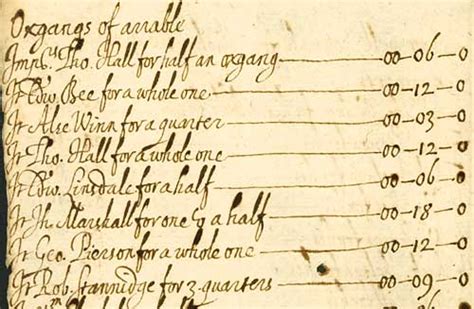 Oxgangs of arrable
Imps. Tho. Hall for half an oxgang 00-06-0
It Edw. Bee for a whole one 00-12-0
It Alse Winn for a quarter 00-03-0
It Tho. Hall for a whole one 00-12-0
It Edw. Linsdale for a half 00-06-0
It Jh. Marshall for one & a half 00-18-0
It Geo. Pierson for a whole one 00-12-0
It Rob. Stannidge for 3 quarters 00-09-0